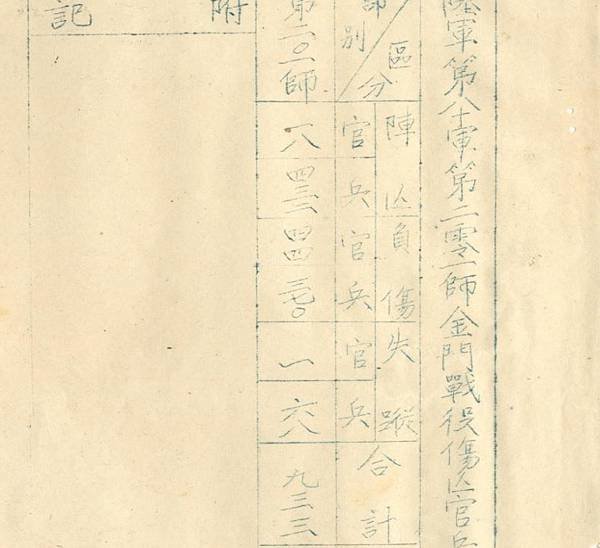 陸軍第八十軍第二零一師金門戰役傷亡官兵
區分
陣亡
負傷
失蹤
部別
官
兵
官
兵
官
兵
合計
第二〇一師
一八
四三二
四四
三七〇
一
六八
九三三
附記